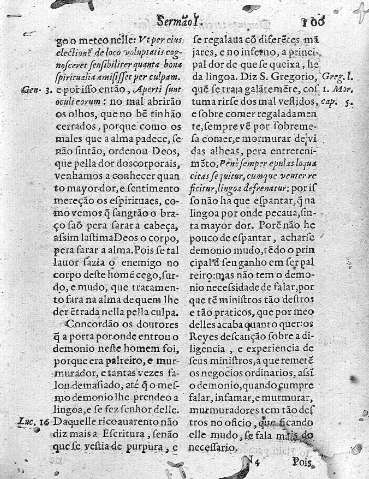 Sermão I.
100
go o meteo nelle: Vt per eius
electionē de loco voluptatis cog-
nosceret sensibiliter quanta bona
spiritualia amisisset per culpam.
Gen. 3.
e por isso entāo, Aperti sunt
oculi eorum: no mal abrirāo
os olhos, que no bē tinhāo
cerrados, porque como os
males que a alma padece, se
nāo sintāo, ordenou Deos,
que pella dor dos corporais,
venhamos a conhecer quan
to mayor dor, e sentimento
mereçāo os espirituaes, co-
mo vemos q̄ sangrāo o bra-
ço saō pera sarar a cabeça,
assim lastima Deos o corpo,
pera sarar a alma. Pois se tal
lauor fazia o enemigo no
corpo deste homē cego, sur-
do, e mudo, que tratamen-
to fara na alma de quem lhe
der ētrada nella pella culpa.
Concordāo os doutores
q̄ a porta por onde entrou o
demonio neste homem foi,
porque era palreiro, e mur-
murador, e tantas vezes fa-
lou demasiado, atē q̄ o mes-
mo demonio lhe prendeo a
lingoa, e se fez senhor delle.
Luc. 16
Daquelle rico auarento nāo
diz mais a Escritura, senāo
que se vestia de purpura, e
se regalaua cō diferēces mā
jares, e no inferno, a princi-
pal dor de que se queixa, he
da lingoa. Diz S. Gregorio,
Greg. l.
1. Mor.
cap. 5.
quē se traja galātemēte, cos
tuma rirse dos mal vestidos,
e sobre comer regaladamen
te, sempre vē por sobreme-
sa comer, e mormurar de vi
das alheas, pera entreteni-
mēto, Penè semper epulas loqua
citas sequitur, cumque venter re
ficitur, lingoa defrenatur: por is
so nāo ha que espantar, q̄ na
lingoa por onde pecaua, sin-
ta mayor dor. Porē nāo he
pouco de espantar, acharse
demonio mudo, tēdo o prin
cipal d seu ganho em ser pal
reiro: mas nāo tem o demo-
nio necessidade de falar, por
que tē ministros tāo destros
e tāo praticos, que por meo
delles acaba quanto quer: os
Reyes descansāo sobre a di-
ligencia, e experiencia de
seus ministros, a que remetē
os negocios ordinarios, assi
o demonio, quando cumpre
falar, infamar, e murmurar,
murmuradores tem tāo des-
tros no officio, que ficando
elle mudo, se fala mais do
necessario.
N 4
Pois